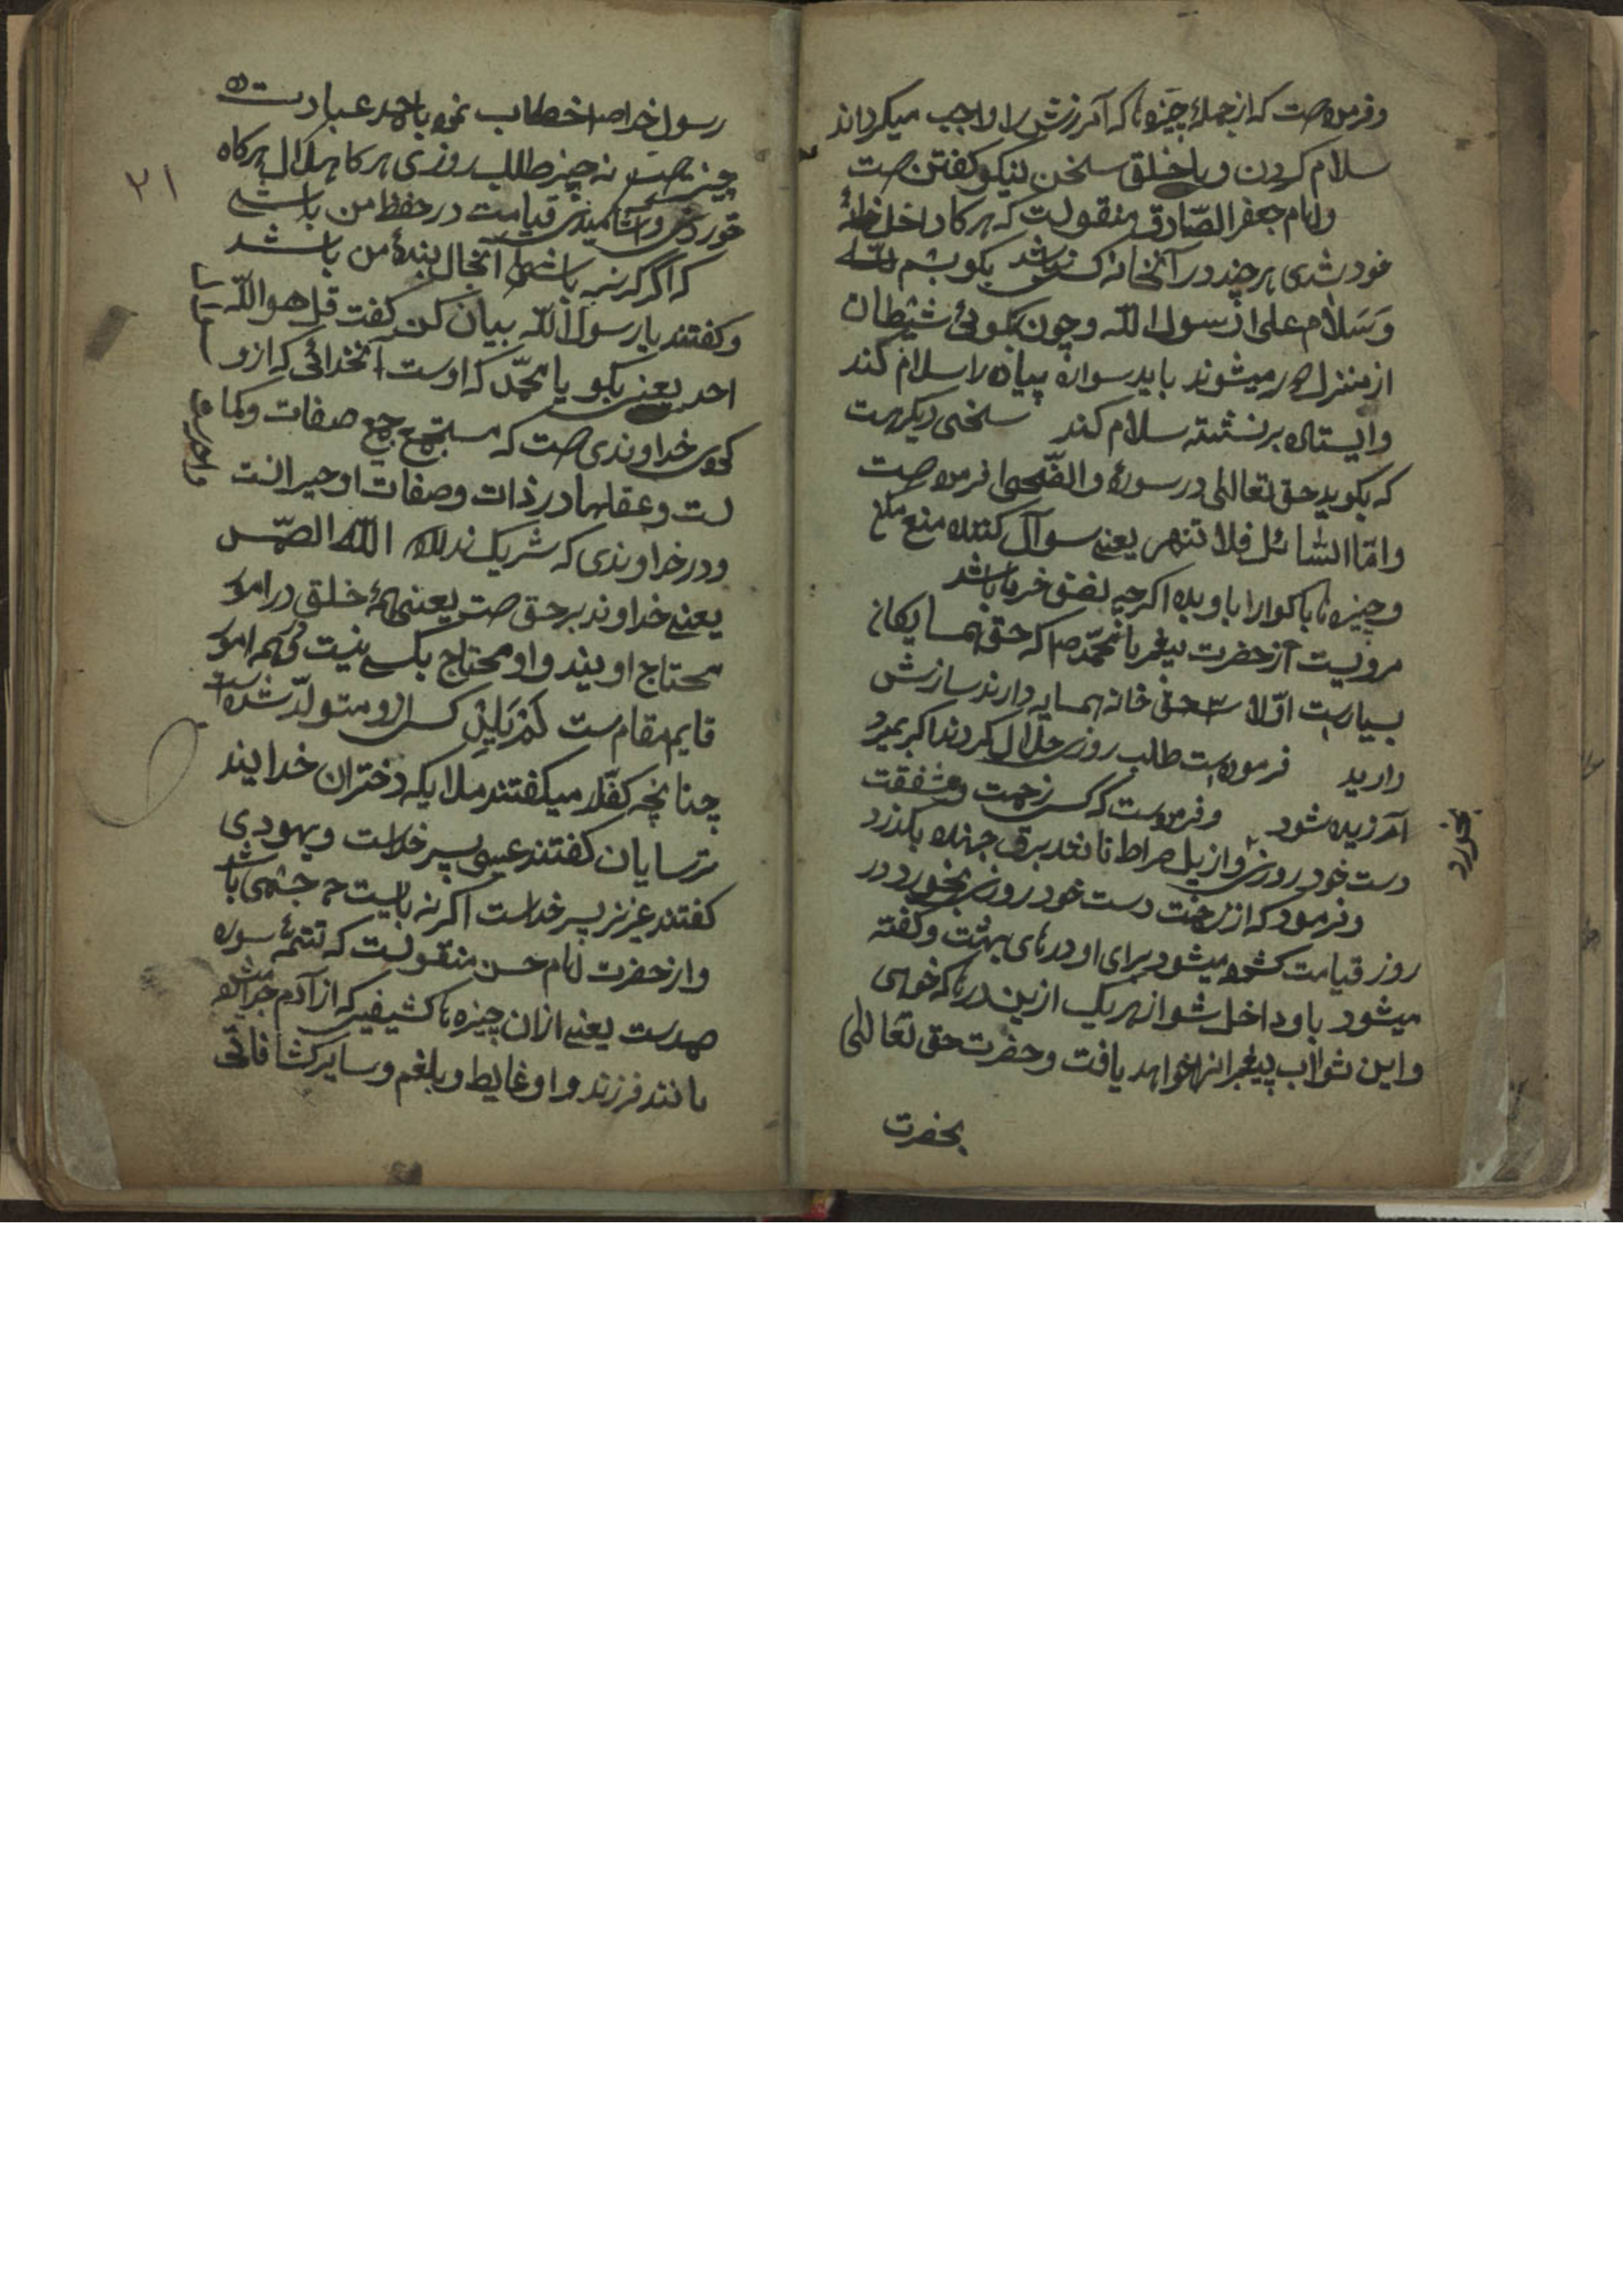 وفرموده است که از جمله چیزها که آمرزش را واجب میکرداند
سلام کردن و با خلق سخن نیکو کفتن است
وامام جعفر الصّادق منقولست که هرکا داخل خانهٔ
خود شدی هر چند در آنخانه کسی نباشد بکو بسم الله
وَسَلام علی رسول الله وچون بکوئی شیطان
از منزل میشوند باید سواره پیاده را سلام کند
وایستاده بر نشسته سلام کند سخنی دیکر است
که بکوید حق تعالی در سورهٔ والضّحی فرموده است
وامّا السّائل فلا تنهر یعنی سوآل کننده منع مکن
وچیزها با کوارا باو بده اکرچه نصف خرما باشد
مرویست از حضرت پیغمبر ما محمّد ص که حق همسایکان
بسیار است اوّلا حق خانه همسایه دارند سازش
دارید فرموده است طلب روزی حلال کردند اکر بمیرد
آمرزیده شود وفرموده است که کسی زحمت ومشفقت
دست خود روزی واز پل صراط مانند برق جهنده بکذرد
وفرمود که از زحمت دست خود روزی بخورد در
روز قیامت کشوده میشود برای او درهای بهشت وکفته
میشود باو داخل شو از هر یک ازین درها که خواهی
واین ثواب پیغمبرانرا خواهد یافت وحضرت حق تعالی
بحضرت
بخورد
۲۱
رسول خدا ص خطاب نمود یا احمد عبادت ده
چیز است نه چیز طلب روزی هرکا حلال هرکاه
خوردنی وآشامیدنی قیامت در حفظ من باشی
که اکر کرسنه باشی آنحال بندهٔ من باشد
وکفتند یا رسول الله بیان کن کفت قل هو الله
احد یعنی بکو یا محمّد که اوست آنخدائی که ازو
خداوندی است که مستجمع جمیع صفات وکما
لست وعقلها در ذات وصفات او حیرانست
ودر خداوندی که شریک ندارد الله الصّمد
یعنی خداوند بر حق است یعنی همهٔ خلق در امور
محتاج اویند واو محتاج بکسی نیست در همه امور
قایم مقام است لَمْ یَلِدْ کسی ازو متولّد نشده است
چنانچه کفّار میکفتند ملایکه دختران خدایند
ترسایان کفتند عیسی پسر خداست ویهودی
کفتند عزیز پسر خداست اکر نه بایست جسمی باشد
واز حضرت امام حسن منقولست که تتمهٔ سوره
صمد است یعنی ازان چیزها کثیفی که از آدم جدا میشود
مانند فرزند واو غایط وبلغم وسایر کثافاتی